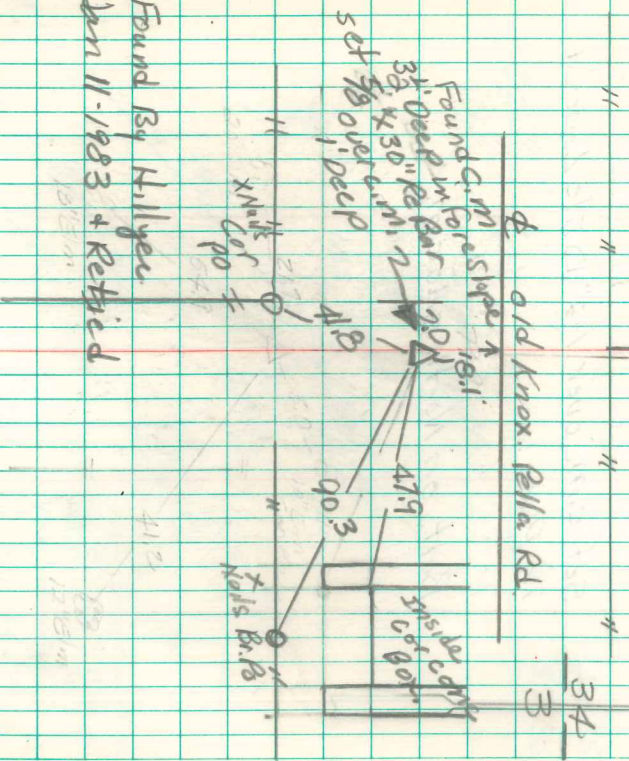 34
3
" " " "
℄ Old Knox. Pella Rd.
Found C.M.
3½' Deep in foreslope
set 5/8" x 30" Re Bar
over C.M.
1' Deep
18.1'
7.0
41.8
47.9
90.3
Inside
Cor Conc
Box
" "
X Nails
Cor
Po
" "
X
Nails Br. Po
Found By Hillyer
Jan 11-1983 + Retied